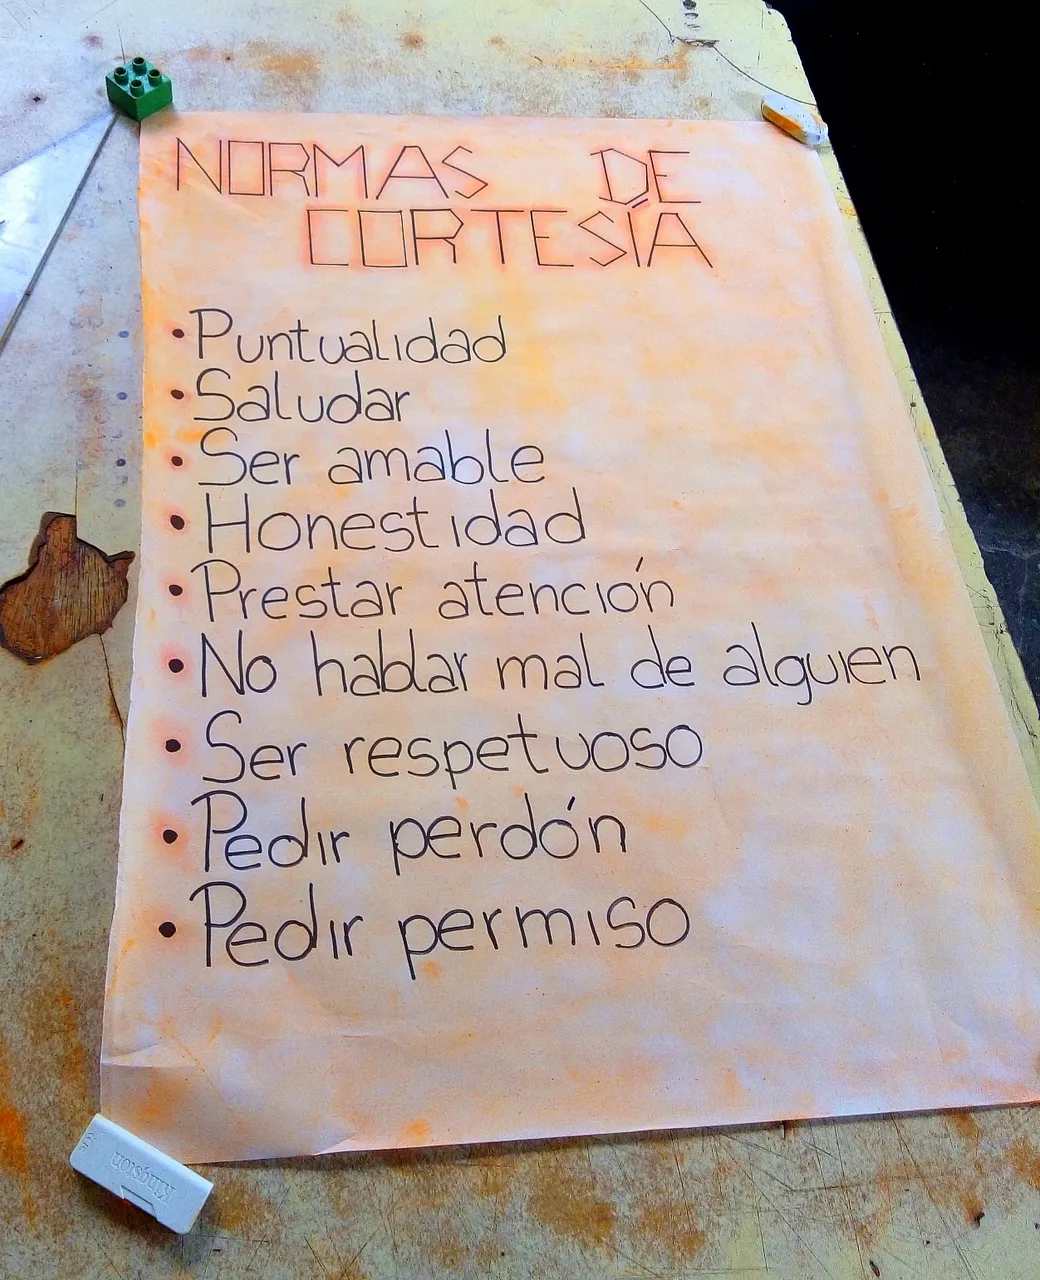 NORMAS DE
CORTESÍA
• Puntualidad
• Saludar
• Ser amable
• Honestidad
• Prestar atención
• No hablar mal de alguien
• Ser respetuoso
• Pedir perdón
• Pedir permiso
Kingston